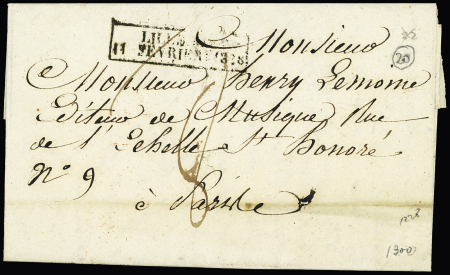 LILLE
11 FEVRIER 1828
Monsieur
Monsieur henry Lemoine
Editeur de Musique Rue
de l'Echelle St honoré
N° 9
à Paris
20
1300